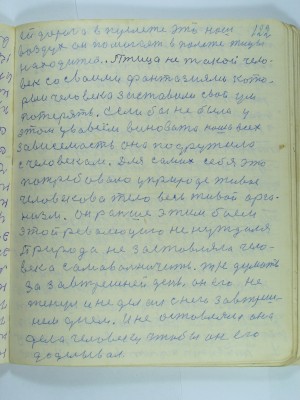 122
ей дорога в полете это наш
воздух он помогает в полете птице
находится.. Птица не такой чело-
век со своими фантазиями кото-
рый человека заставили свой ум
потерять. Если бы не было у
этом виновата наша всех
зависимость она подружила
с человеком. Для самих себя это
потребовало у природе живое
человека тело весь живой орга-
низм. он раньше этим был
этой революцией не нуждался
Природа не заставляла чело-
века самовольничать. Не думать
за завтрашний день, он его не
и не делал с него завтраш-
ним днем. И не оставляла она
дела человеку чтобы он его
доделывал